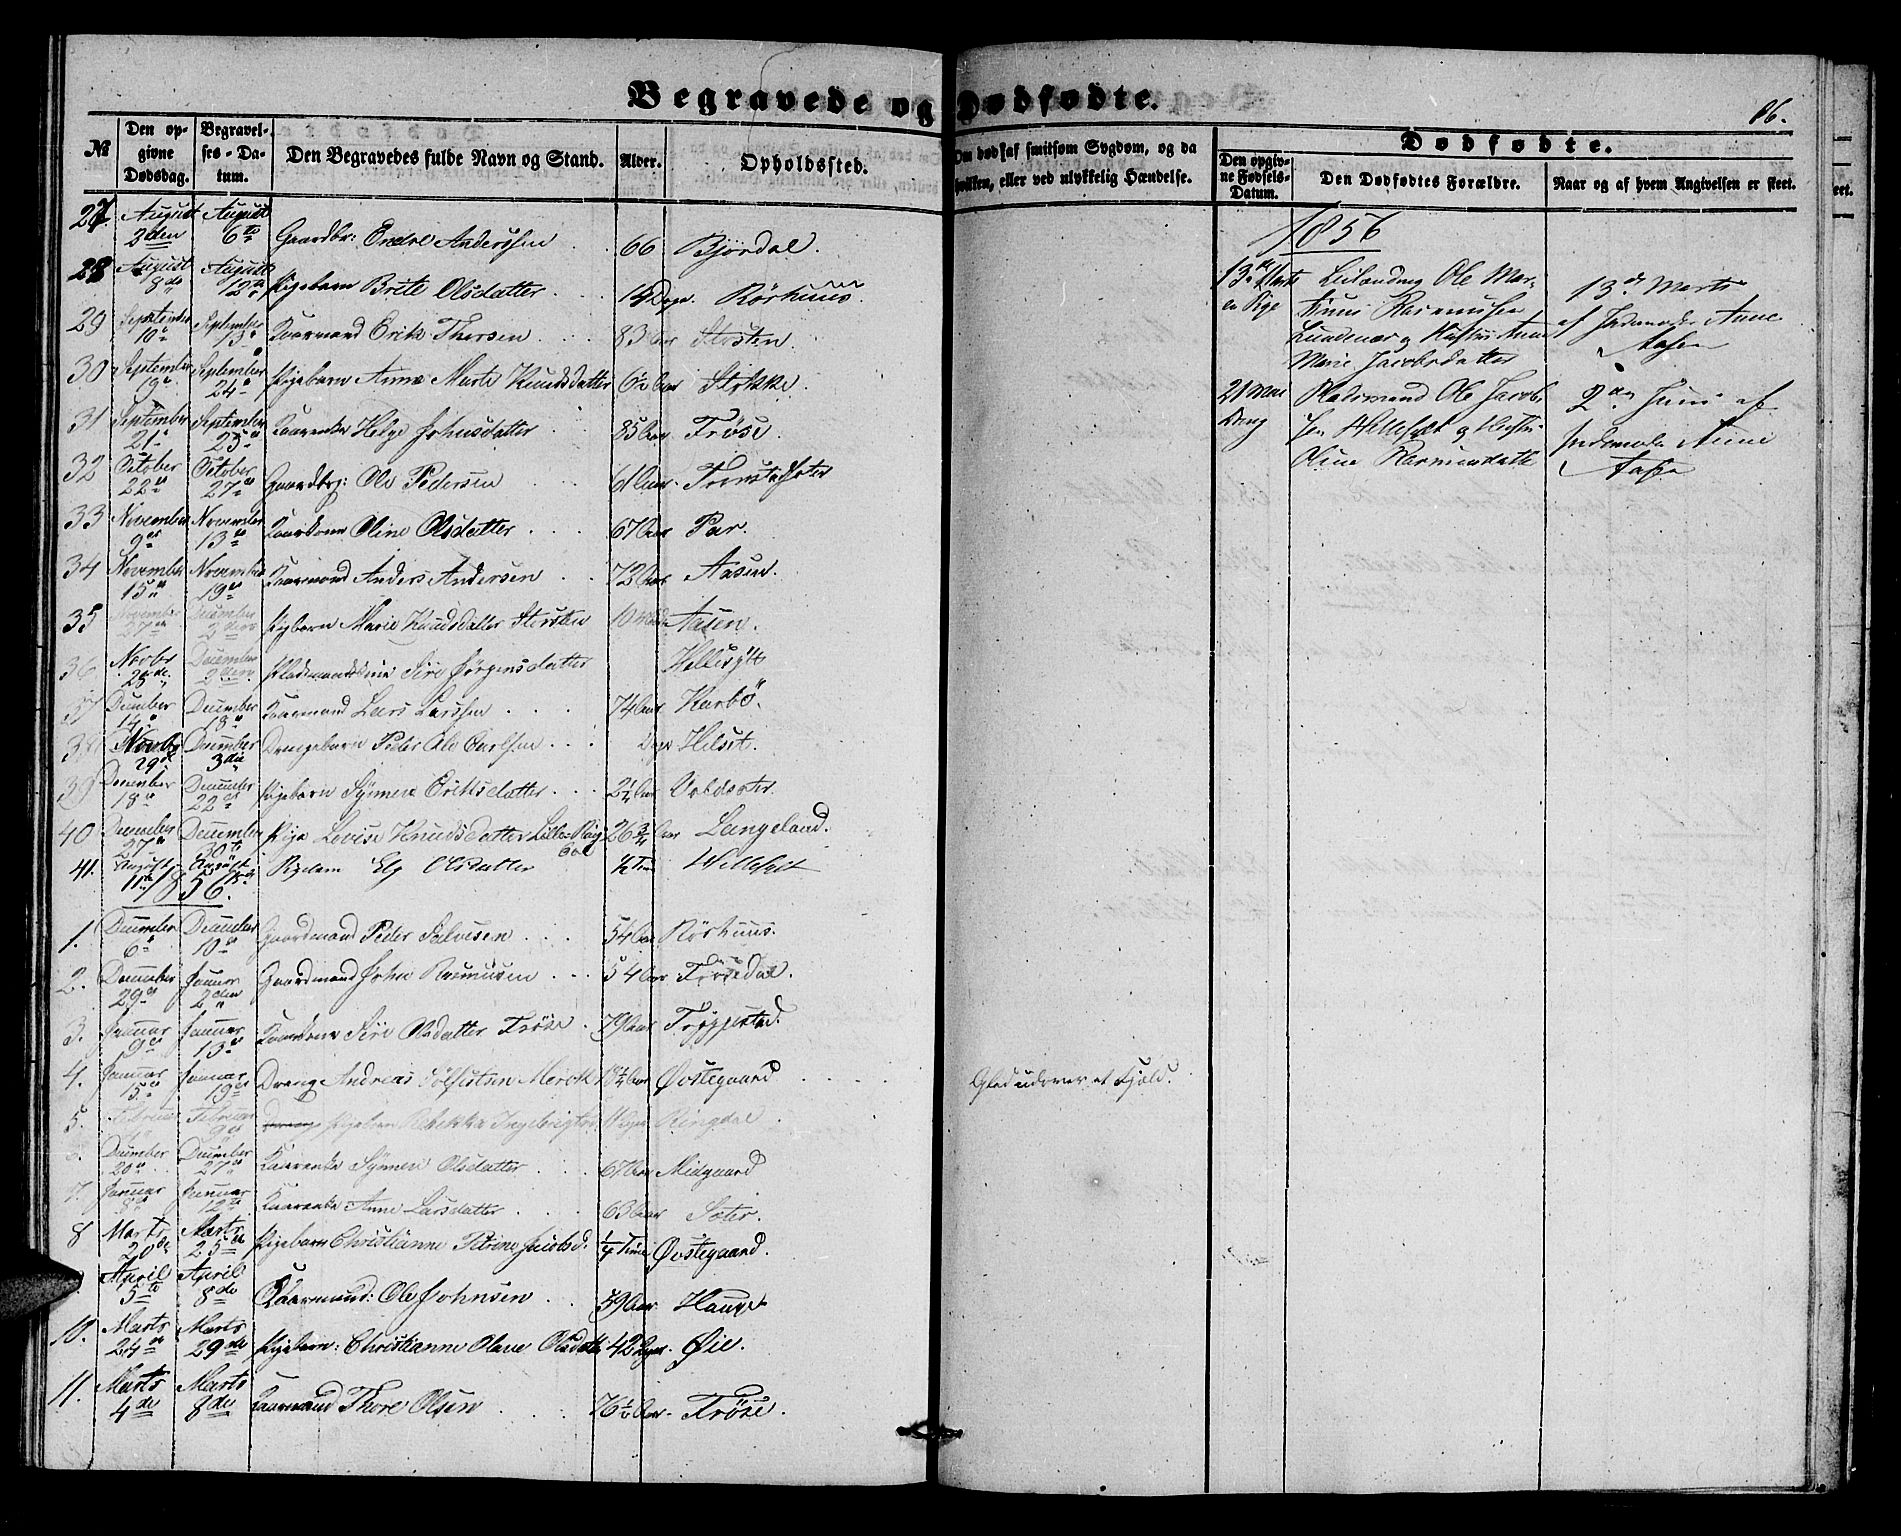 Begravede og Dødfødte.
86.
№
Den opgivne Dødsdag.
Begravelses-Datum.
Den Begravedes fulde Navn og Stand.
Alder.
Opholdssted.
Om død af smitsom Sygdom, og da
hvilken, eller ved ulykkelig Hændelse.
Dødfødte.
Den opgivne Fødsels-Datum.
Den Dødfødtes Forældre.
Naar og af hvem Angivelsen er skeet.
27. August 2den August 6te Gaardbr: Endre Anderssen 66 Bjørdal.
28 August 8de August 12te Pigebarn Brite Olsdatter 14 Dage. Rørhuus.
29 September 10de September 13de Kaarmand Erik Thorsen 83 Aar Stosten.
30 September 19de September 24de Pigebarn Anne Marte Knudsdatter 6½ Aar Stokke.
31 September 21de September 25de Kaarenke Helge Johnsdatter 85 Aar Trøse.
32 October 22de October 27de Gaardbr: Ole Pedersen 61 Aar.
33 November 9de November 13de Kaarkone Oline Olsdatter 67 Aar
34 November 15de November 19de Kaarmand Anders Andersen 72 Aar Aasen.
35 November 27de December 2den Pigebarn Marie Knudsdatter Stosten Aasen.
36 Novbr 25de December 2den Pladsmandskone Siri Jørgensdatter Hellesylt
37 December 14de December 18de Kaarmand Lars Larssen 74 Aar Karbø.
38 Novbr 29de December 3die Drengebarn Peder Ole Carlsen Dage Helset.
39 December 18de December 22de Pigebarn Synnen Eriksdatter 2¼ Aar Voldsæter.
40 December 27de December 30te Pige Lovise Knudsdatter Lille- 26¾ Aar Langeland.
41. August 11te August Pigebarn Olsdatter ½ Time
1856.
1. December 6te December 10de Gaardmand Peder Salvesen 54 Aar Rørhuus.
2. December 29de Januar 2den Gaardmand John Rasmussen 54 Aar Trøsedal.
3. Januar 9de Januar 13de Kaarkone Siri Olsdatter Trøse 79 Aar Trøggestad.
4. Januar 15de Januar 19de Dreng Andreas Merok 18¼ Aar Øvstegaard Gled udover et Fjeld.
5. Februar Februar 9de Pigebarn Rebekka Ingebrigtsd Ringdal
6. December 20de December 27de Kaarenke Synnen Olsdatter 67 Aar Midgaard
7. Januar 8de Januar 12te Kaarenke Anne Larsdatter 63 Aar Sæter.
8 Marts 20de Marts 25de Pigebarn Christianne Petrine Jacobsd. ¼ Time Øvstegaard.
April 5te April 8de Kaarmand: Ole Johnsen 59 Aar. Hauge
10. Marts 24de Marts 29de Pigebarn: Christianne Olave Olsdatter 42 Dage. Øie.
11. Marts 4de Marts 8de Kaarmand Thore Olsen 76½ Aar. Trøse.
1856
13de Marts Leilænding Ole Mar- 13de Marts
en Pige tinus Rasmussen af Jordemoder Anne
og Hustru Anne Aasen
Marie Jacobsdatter
21 Mai Pladsmand Ole Jacob- 2den Juni af
Dreng sen Hellesylt og Hustru Jordemoder Anne
Oline Rasmusdatter Aasen